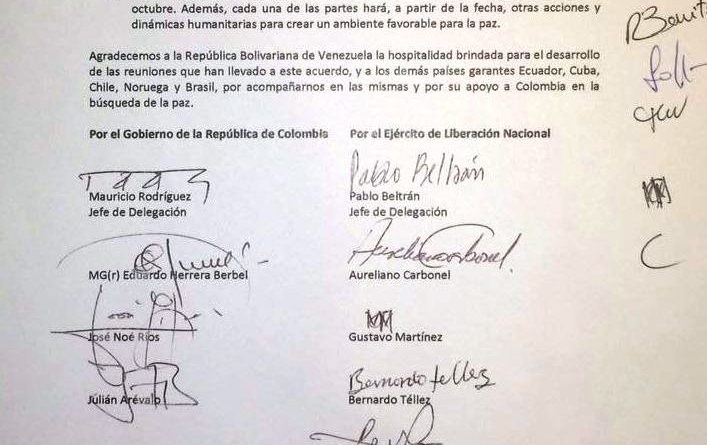 octubre. Además, cada una de las partes hará, a partir de la fecha, otras acciones y
dinámicas humanitarias para crear un ambiente favorable para la paz.
Agradecemos a la República Bolivariana de Venezuela la hospitalidad brindada para el desarrollo
de las reuniones que han llevado a este acuerdo, y a los demás países garantes Ecuador, Cuba,
Chile, Noruega y Brasil, por acompañarnos en las mismas y por su apoyo a Colombia en la
búsqueda de la paz.
Por el Gobierno de la República de Colombia Por el Ejército de Liberación Nacional
Pablo Beltrán
Mauricio Rodríguez Pablo Beltrán
Jefe de Delegación Jefe de Delegación
Aureliano Carbonel
MG(r) Eduardo Herrera Berbel Aureliano Carbonel
José Noé Ríos Gustavo Martínez
Bernardo Tellez
Julián Arévalo Bernardo Téllez